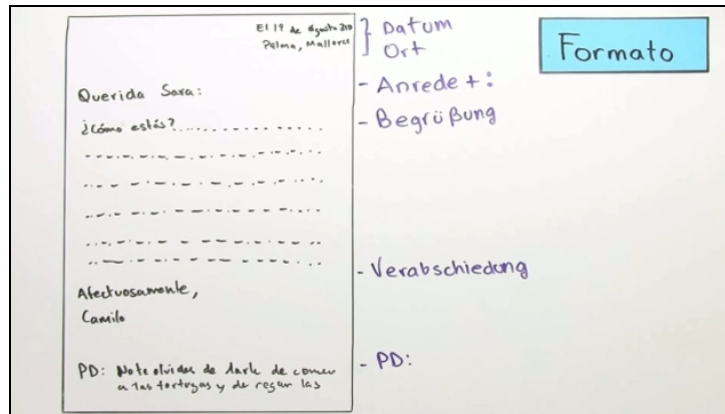 El 19 de Agosto
Palma, Mallorca
Querida Sara:
¿Cómo estás?
Afectuosamente,
Camilo
PD: No te olvides de darle de comer
a las tortugas y de regar las
Datum
Ort
- Anrede + :
- Begrüßung
- Verabschiedung
- PD:
Formato